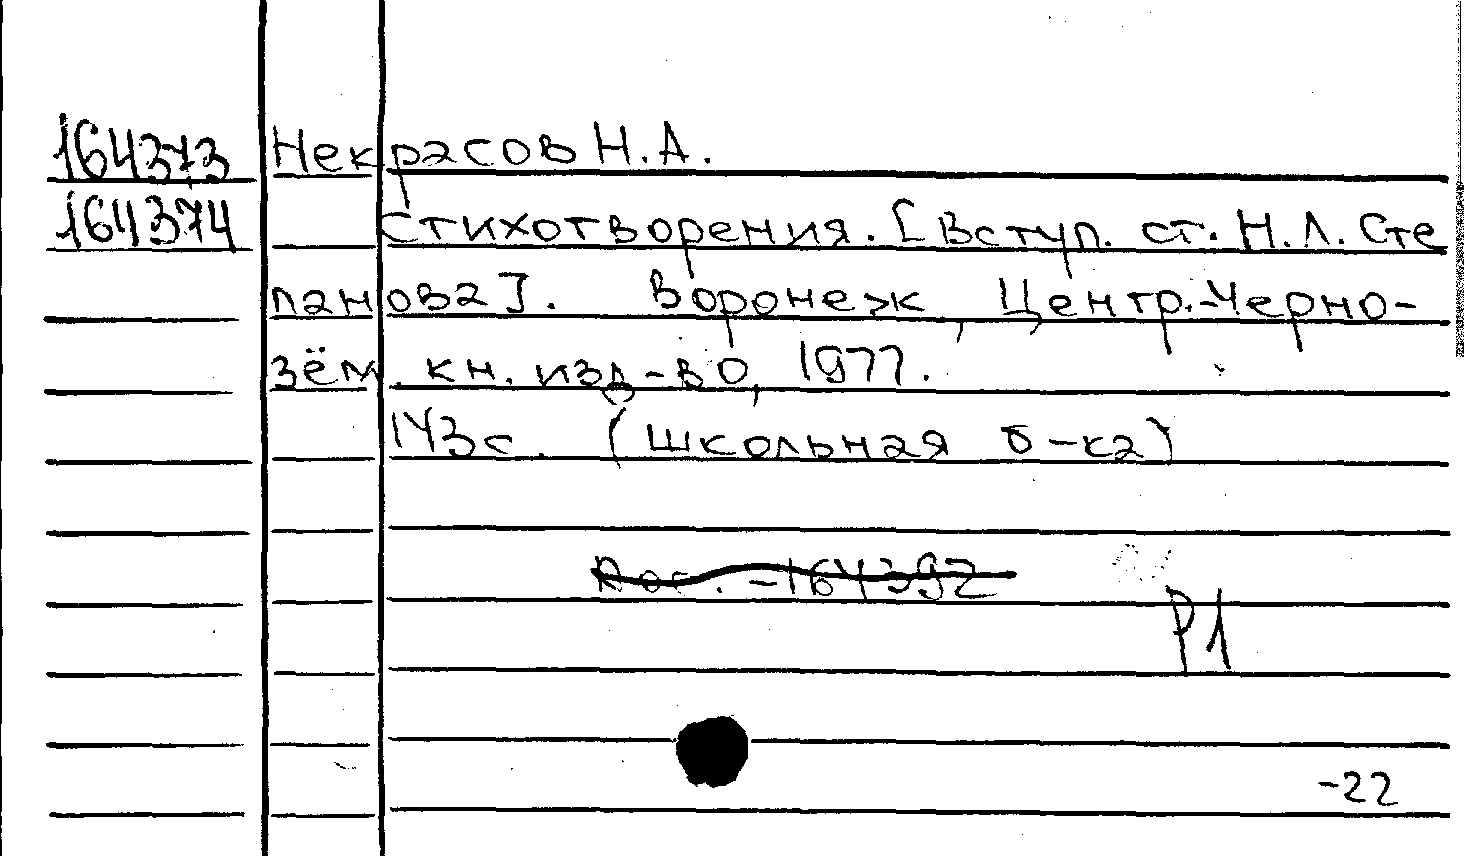 164373 Некрасов Н.А.
164374 Стихотворения. [Вступ. ст. Н.Л. Сте
панова]. Воронеж, Центр.-Черно-
зём. кн. изд-во, 1977.
143с. (школьная б-ка)
-164392
Р1
-22